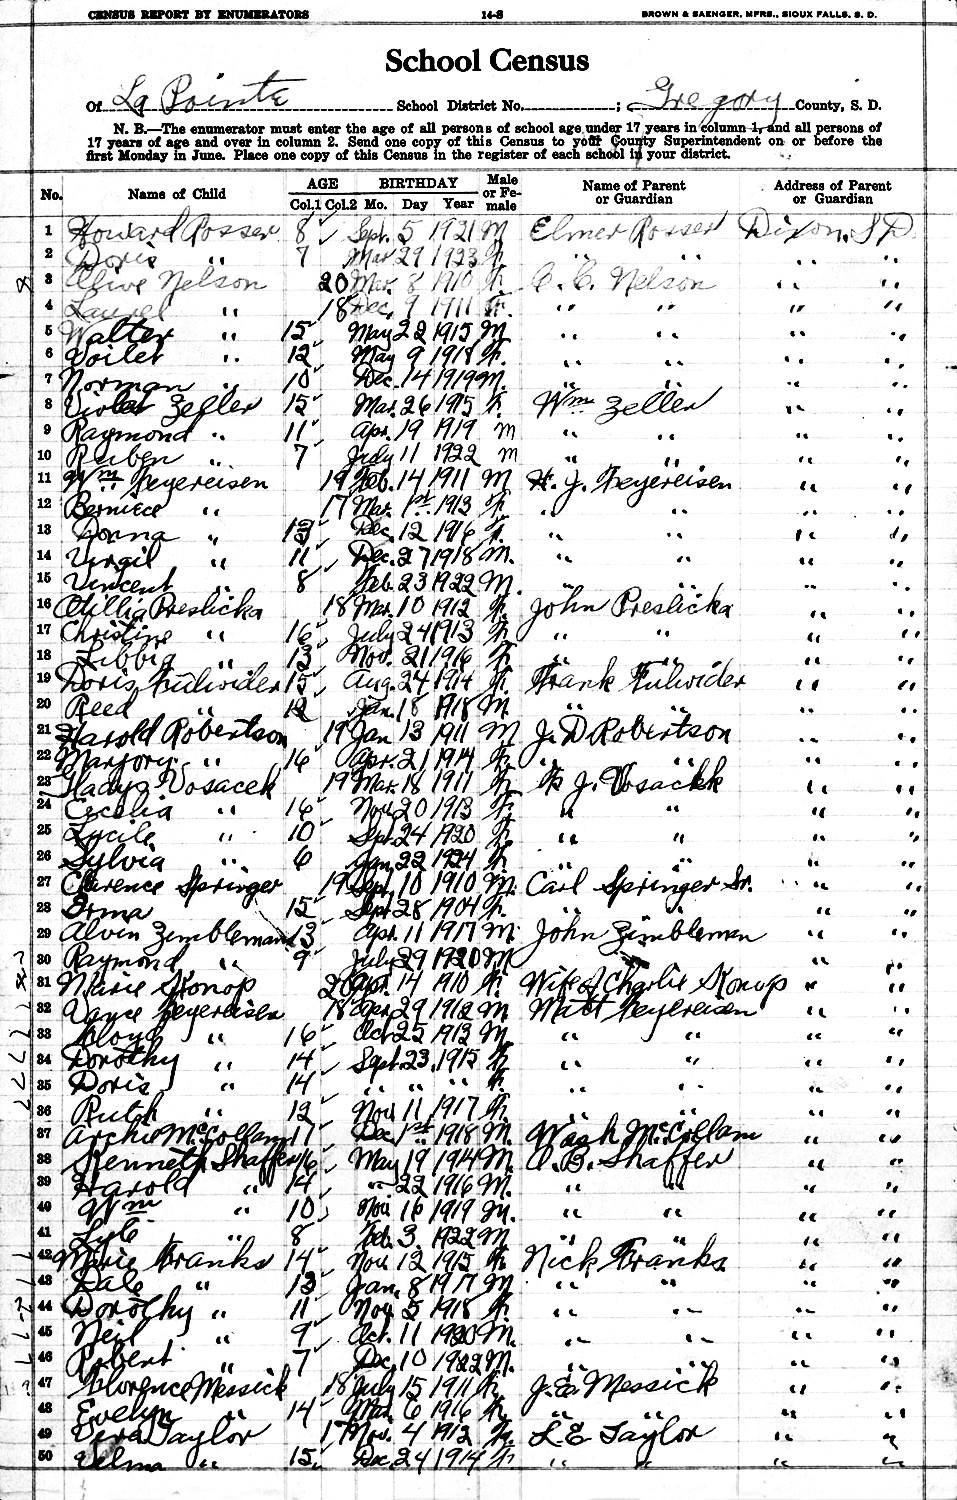 CENSUS REPORT BY ENUMERATORS 14-S BROWN & SAENGER, MFRS., SIOUX FALLS, S. D.
School Census
Of La Pointe School District No. ; Gregory County, S. D.
N. B.—The enumerator must enter the age of all persons of school age under 17 years in column 1, and all persons of
17 years of age and over in column 2. Send one copy of this Census to your County Superintendent on or before the
first Monday in June. Place one copy of this Census in the register of each school in your district.
No. Name of Child AGE Col.1 Col.2 BIRTHDAY Mo. Day Year Male or Fe-male Name of Parent or Guardian Address of Parent or Guardian
1 Howard Rosser 8 Sept. 5 1921 M Elmer Rosser Dixon, S D.
2 Doris " 7 Mar 29 1923 F. " " " "
3 Olive Nelson 20 Mar. 8 1910 F. C. C. Nelson " "
4 Laurel " 18 Dec. 9 1911 F. " " " "
5 Walter " 15 May 22 1915 M " " " "
6 Voilet " 12 May 9 1918 F. " " " "
7 Norman " 10 Dec. 14 1919 M. " " " "
8 Violet Zeller 15 Mar. 26 1915 F. Wm Zeller " "
9 Raymond " 11 Apr. 19 1919 M " " " "
10 Ruben " 7 July 11 1922 M " " " "
11 Wm. Feyereisen 19 Feb. 14 1911 M H. J. Feyereisen " "
12 Berniece " 17 Mar. 1st 1913 F. " " " "
13 Donna " 13 Dec. 12 1916 F. " " " "
14 Virgil " 11 Dec. 27 1918 M. " " " "
15 Vincent " 8 Feb. 23 1922 M. " " " "
16 Otillia Preslicka 18 Mar. 10 1912 F. John Preslicka " "
17 Christine " 16 July 24 1913 F. " " " "
18 Libbia " 13 Nov. 21 1916 F. " " " "
19 Doris Fulwider 15 Aug. 24 1914 F. Frank Fulwider " "
20 Reed " 12 Jan. 18 1918 M. " " " "
21 Harold Robertson 19 Jan 13 1911 M J. D Robertson " "
22 Marjory " 16 Apr. 21 1914 F. " " " "
23 Gladys Vosacek 19 Mar. 18 1911 F. F J. Vosackk " "
24 Cecelia " 16 Nov. 20 1913 F. " " " "
25 Lucile " 10 Sept. 24 1920 F. " " " "
26 Sylvia " 6 Jan. 22 1924 F. " " " "
27 Clarence Springer 19 Sept. 10 1910 M. Carl Springer Sr. " "
28 Erma " 15 Sept 28 1904 F. " " " "
29 Alvin Zimbleman 13 Apr. 11 1917 M. John Zimbleman " "
30 Raymond " 9 July 29 1920 M " " " "
31 Marie Konop 20 Apr. 14 1910 F. Wife of Charlie Konop " "
32 Feyereisen 18 Apr. 29 1912 M Matt Feyereisen " "
33 Floyd " 16 Oct 25 1913 M " " " "
34 Dorothy " 14 Sept. 23. 1915 F. " " " "
35 Doris " 14 " " " F. " " " "
36 Ruth " 12 Nov. 11 1917 F. " " " "
37 Archie McCollam 11 Dec. 1st 1918 M. Wash McCollam " "
38 Kenneth Shaffer 16 May 19 1914 M. O. B. Shaffer " "
39 Harold " 14 " 22 1916 M. " " " "
40 Wm " 10 Nov. 16 1919 M. " " " "
41 Lyle " 8 Feb. 3 1922 M " " " "
42 Marie Franks 14 Nov. 12 1915 F. Nick Franks " "
43 Dale " 13 Jan. 8 1917 M " " " "
44 Dorothy " 11 Nov. 5 1918 F. " " " "
45 Neil " 9 Oct. 11 1920 M. " " " "
46 Robert " 7 Dec. 10 1922 M. " " " "
47 Florence Messick 18 July 15 1911 F. J. E. Messick " "
48 Evelyn " 14 Mar. 6 1916 F. " " " "
49 Vera Taylor 17 Nov. 4 1912 F. L. E Taylor " "
50 Velma " 15 Dec. 24 1914 F. " " " "